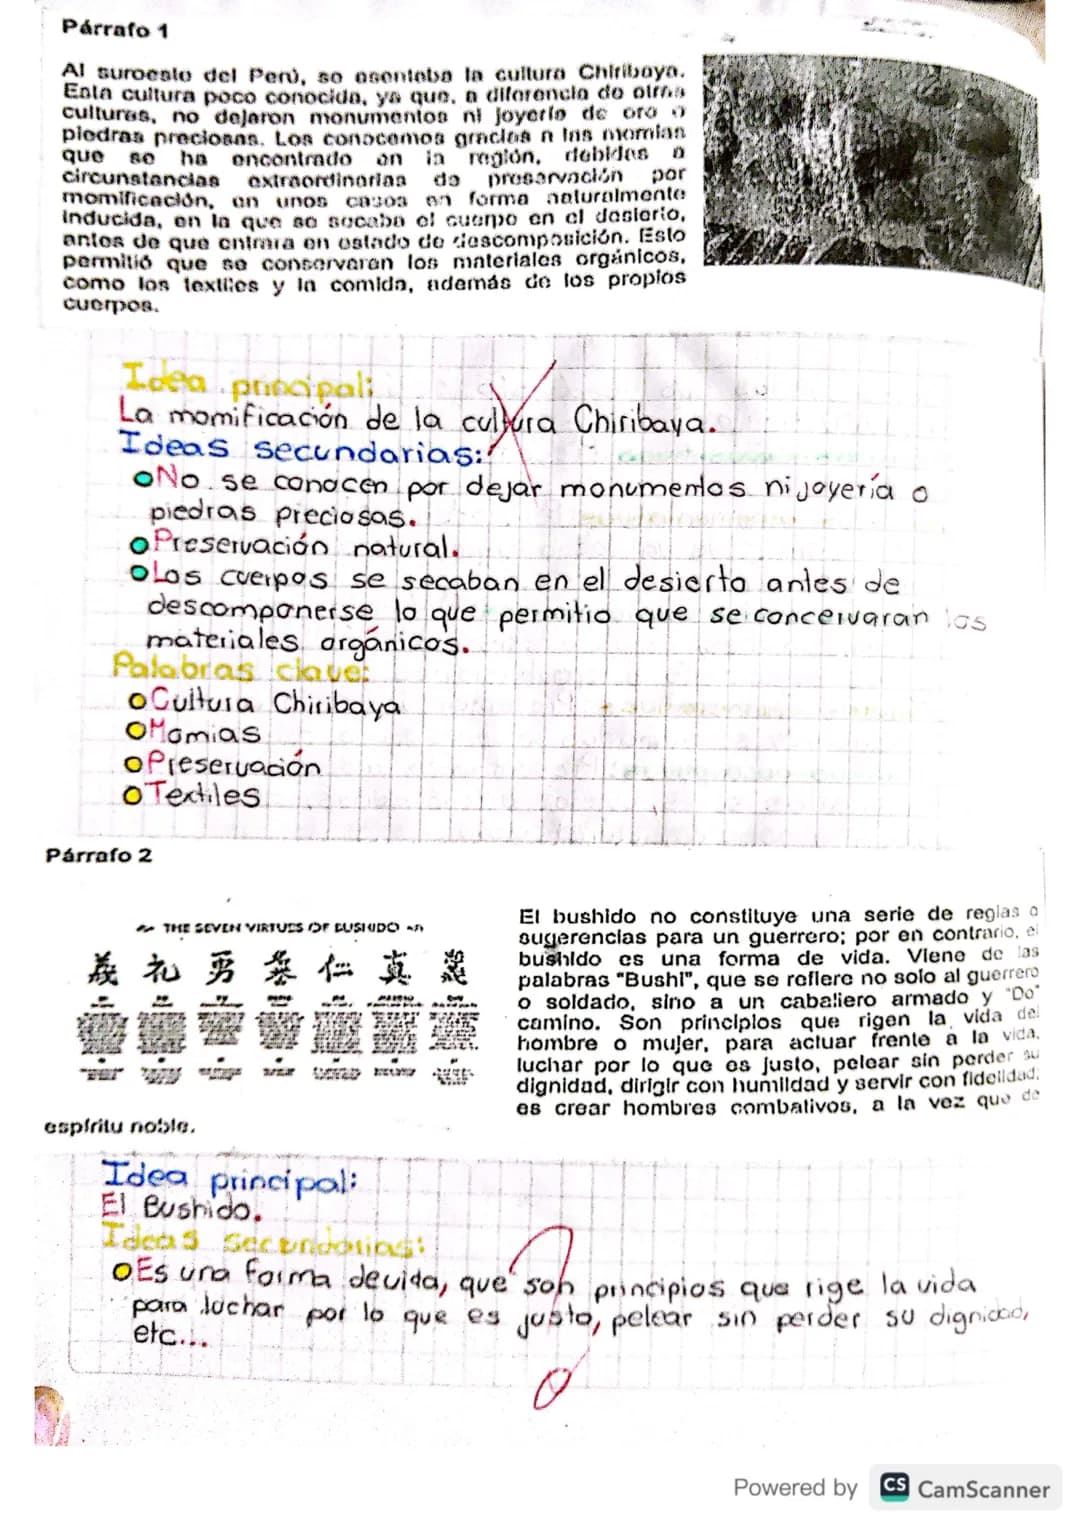 Párrafo 1
Al suroeste del Perú, se asentaba la cultura Chiribaya.
Esta cultura poco conocida, ya que, a diferencia de otras
culturas, no dejaron monumentos ni joyería de oro o
piedras preciosas. Los conocemos gracias a las momias
que se ha encontrado en la región, debidas a
circunstancias extraordinarias de preservación por
momificación, en unos casos en forma naturalmente
inducida, en la que se secaba el cuerpo en el desierto,
antes de que entrara en estado de descomposición. Esto
permitió que se conservaran los materiales orgánicos,
como los textiles y la comida, además de los propios
cuerpos.
Idea principal:
La momificación de la cultura Chiribaya.
Ideas secundarias:
No se conocen por dejar monumentos ni joyería o
piedras preciosas.
Preservación natural.
Los cuerpos se secaban en el desierto antes de
descomponerse lo que permitio que se concervaran los
materiales orgánicos.
Palabras clave:
Cultura Chiribaya
Momias
Preservación
Textiles
Párrafo 2
THE SEVEN VIRTUES OF BUSHIDO
義 礼 勇 誉 仁 真 忠
El bushido no constituye una serie de reglas o
sugerencias para un guerrero; por en contrario, el
bushido es una forma de vida. Viene de las
palabras "Bushi", que se refiere no solo al guerrero
o soldado, sino a un caballero armado y "Do"
camino. Son principios que rigen la vida del
hombre o mujer, para actuar frente a la vida,
luchar por lo que es justo, pelear sin perder su
dignidad, dirigir con humildad y servir con fidelidad;
es crear hombres combativos, a la vez que de
espíritu noble.
Idea principal:
El Bushido.
Ideas secundarias:
Es una forma devida, que son principios que rige la vida
para luchar por lo que es justo, pelear sin perder su dignidad,
etc...
Powered by CS CamScanner